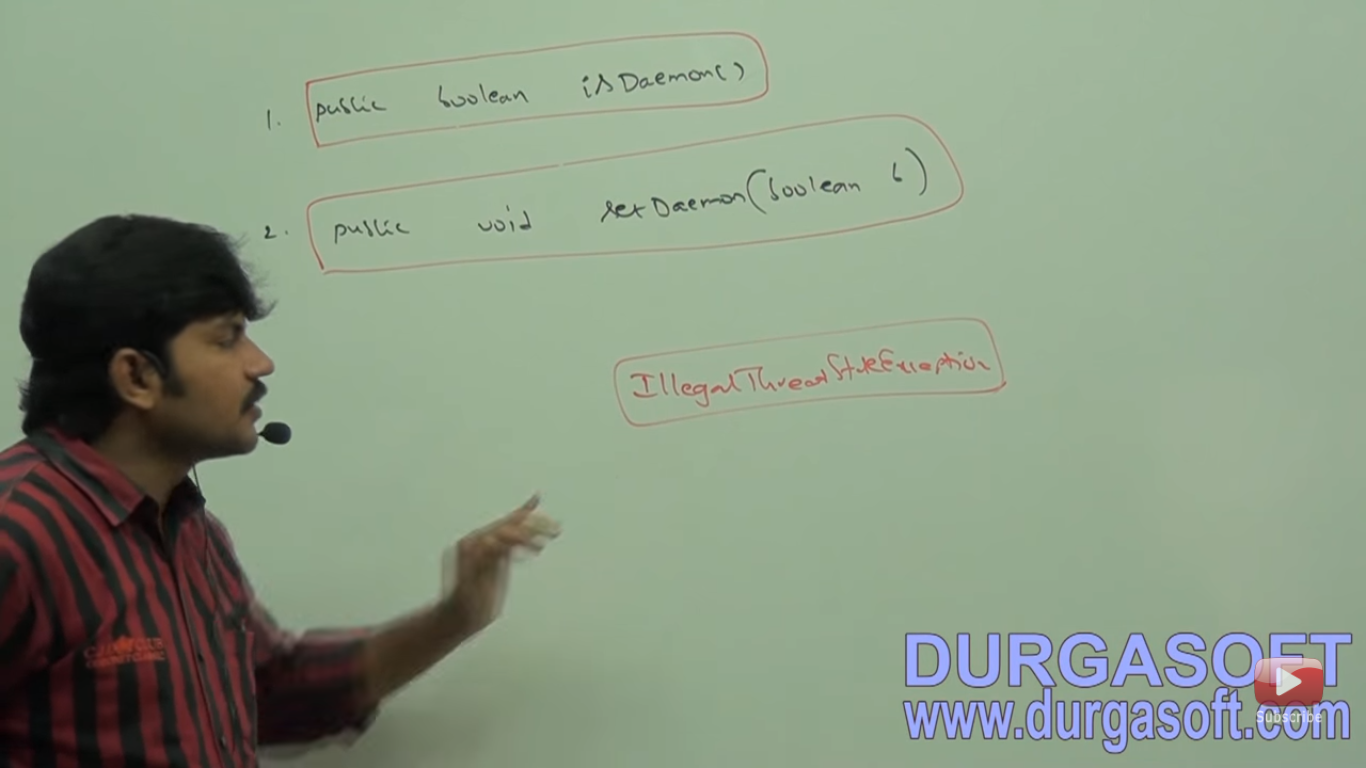 1. public boolean isDaemon()
2. public void setDaemon(boolean b)
IllegalThreadStateException
DURGASOFT
www.durgasoft.com
Subscribe